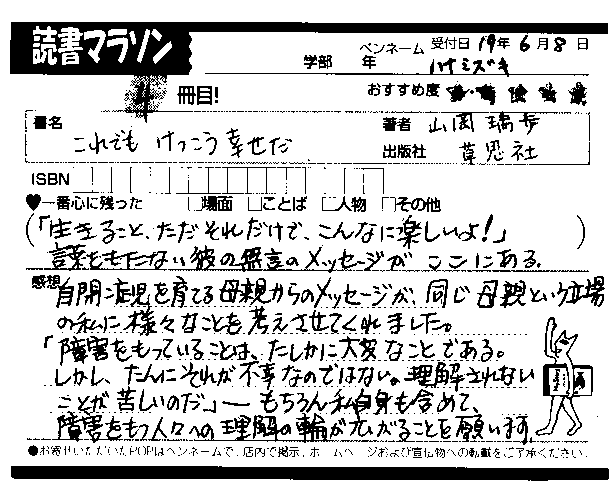 読書マラソン
学部 年 ペンネーム ハナミズキ 受付日 19年 6月 8日
4 冊目! おすすめ度 ★・★・★・★・★
書名 これでも けっこう幸せだ 著者 山岡 瑞歩
出版社 草思社
ISBN
♥一番心に残った □場面 □ことば □人物 □その他
(「生きること、ただそれだけで、こんなに楽しいよ!」)
言葉をもたない彼の無言のメッセージが ここにある。
感想 自閉症児を育てる母親からのメッセージが、同じ母親という立場
の私に様々なことを考えさせてくれました。
「障害をもっていることは、たしかに大変なことである。
しかし、たんにそれが不幸なのではない。理解されない
ことが苦しいのだ」― もちろん私自身も含めて、
障害をもつ人々への理解の輪が広がることを願います。
●お寄せいただいたPOPはペンネームで、店内で掲示、ホームページおよび宣伝物への転載をご了承ください。